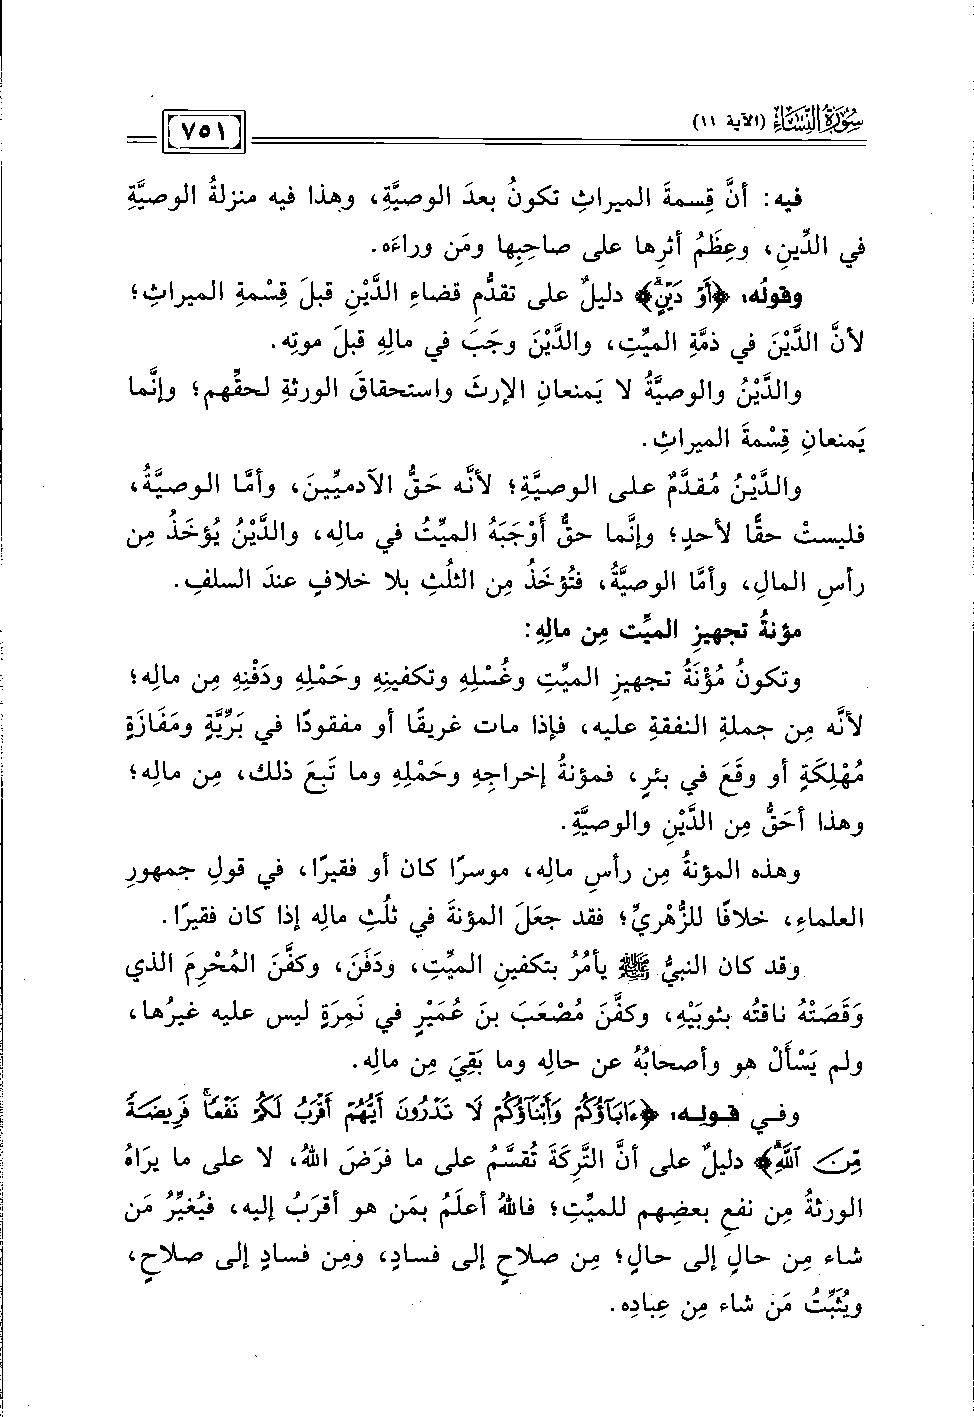 سُورَةُ النِّسَاءِ (الآية ١١)
٧٥١
فيه: أنَّ قِسمةَ الميراثِ تكونُ بعدَ الوصيَّةِ، وهذا فيه منزلةُ الوصيَّةِ
في الدِّينِ، وعِظَمُ أثرِها على صاحِبِها ومَن وراءَه.
وقولُه: ﴿أَوْ دَيْنٍ﴾ دليلٌ على تقدُّمِ قضاءِ الدَّيْنِ قبلَ قِسْمةِ الميراثِ؛
لأنَّ الدَّيْنَ في ذمَّةِ الميِّتِ، والدَّيْنَ وجَبَ في مالِهِ قبلَ موتِه.
والدَّيْنُ والوصيَّةُ لا يَمنعانِ الإرثَ واستحقاقَ الورثةِ لحقِّهم؛ وإنَّما
يَمنعانِ قِسْمةَ الميراثِ.
والدَّيْنُ مُقدَّمٌ على الوصيَّةِ؛ لأنَّه حَقُّ الآدميِّينَ، وأمَّا الوصيَّةُ،
فليستْ حقًّا لأحدٍ؛ وإنَّما حقٌّ أَوْجَبَهُ الميِّتُ في مالِه، والدَّيْنُ يُؤخَذُ مِن
رأسِ المالِ، وأمَّا الوصيَّةُ، فتُؤخَذُ مِن الثلُثِ بلا خلافٍ عندَ السلفِ.
مؤنةُ تجهيزِ الميِّت مِن مالِهِ:
وتكونُ مُؤْنَةُ تجهيزِ الميِّتِ وغُسْلِهِ وتكفينِهِ وحَمْلِهِ ودَفْنِهِ مِن مالِه؛
لأنَّه مِن جملةِ النفقةِ عليه، فإذا مات غريقًا أو مفقودًا في بَرِّيَّةٍ ومَفَازَةٍ
مُهْلِكَةٍ أو وقَعَ في بئرٍ، فمؤنةُ إخراجِهِ وحَمْلِهِ وما تَبِعَ ذلك، مِن مالِه؛
وهذا أحَقُّ مِن الدَّيْنِ والوصيَّةِ.
وهذه المؤنةُ مِن رأسِ مالِه، موسرًا كان أو فقيرًا، في قولِ جمهورِ
العلماءِ، خلافًا للزُّهْريِّ؛ فقد جعَلَ المؤنةَ في ثلُثِ مالِه إذا كان فقيرًا.
وقد كان النبيُّ ﷺ يأمُرُ بتكفينِ الميِّتِ، ودَفَنَ، وكفَّنَ المُحْرِمَ الذي
وَقَصَتْهُ ناقتُه بثوبَيْهِ، وكفَّنَ مُصْعَبَ بنَ عُمَيْرٍ في نَمِرَةٍ ليس عليه غيرُها،
ولم يَسْأَلْ هو وأصحابُهُ عن حالِه وما بَقِيَ مِن مالِه.
وفي قولِه: ﴿ءَابَآؤُكُمْ وَأَبْنَآؤُكُمْ لَا تَدْرُونَ أَيُّهُمْ أَقْرَبُ لَكُمْ نَفْعًا ۚ فَرِيضَةً
مِّنَ ٱللَّهِ﴾ دليلٌ على أنَّ التَّرِكَةَ تُقسَّمُ على ما فرَضَ اللهُ، لا على ما يرَاهُ
الورثةُ مِن نفعِ بعضِهم للميِّتِ؛ فاللهُ أعلَمُ بمَن هو أقرَبُ إليه، فيُغيِّرُ مَن
شاء مِن حالٍ إلى حالٍ؛ مِن صلاحٍ إلى فسادٍ، ومِن فسادٍ إلى صلاحٍ،
ويُثبِّتُ مَن شاء مِن عِبادِه.